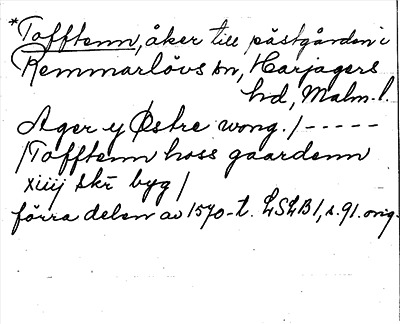 *Tofftenn, åker till pästgården i
Remmarlövs sn, Harjagers
hd, Malm. l.
Ager y Østre wong. / - - - - -
/ Tofftenn hoss gaardenn
xiiij skr byg /
förra delen av 1570-t. LSLB 1, s. 91. orig.